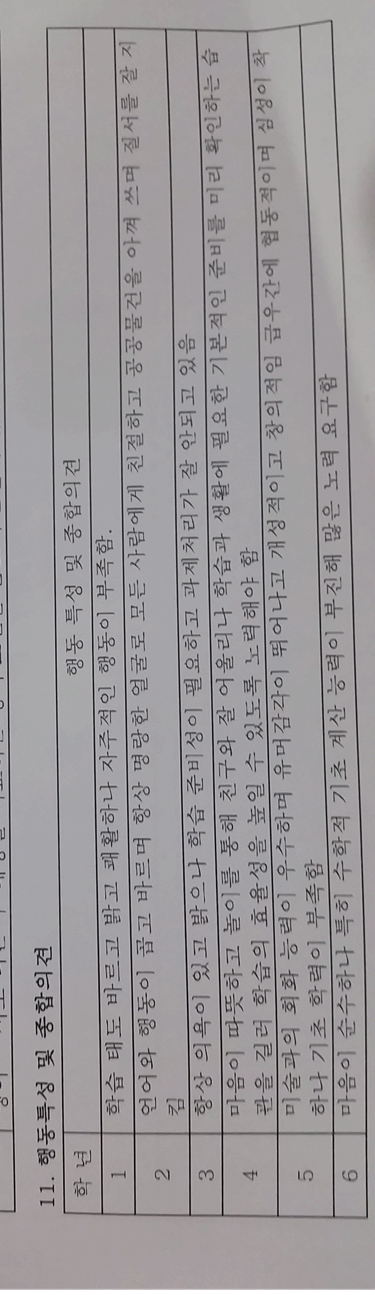 11. 행동특성 및 종합의견
학 년 행동 특성 및 종합의견
1 학습 태도 바르고 밝고 쾌활하나 자주적인 행동이 부족함.
2 언어와 행동이 곱고 바르며 항상 명랑한 얼굴로 모든 사람에게 친절하고 공공물건을 아껴 쓰며 질서를 잘 지
킴
3 항상 의욕이 있고 밝으나 학습 준비성이 필요하고 과제처리가 잘 안되고 있음
4 마음이 따뜻하고 놀이를 통해 친구와 잘 어울리나 학습과 생활에 필요한 기본적인 준비를 미리 확인하는 습
관을 길러 학습의 효율성을 높일 수 있도록 노력해야 함
5 미술과의 회화 능력이 우수하며 유머감각이 뛰어나고 개성적이고 창의적임 급우간에 협동적이며 심성이 착
하나 기초 학력이 부족함
6 마음이 순수하나 특히 수학적 기초 계산 능력이 부진해 많은 노력 요구함